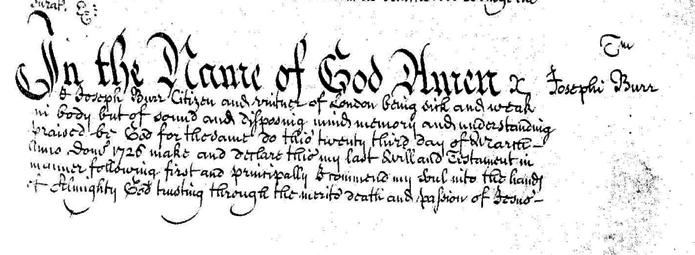 In the Name of God Amen x
Tm
Josephi Burr
I Joseph Burr Citizen and vintner of London being sick and weak
in body but of sound and disposing mind memory and understanding
praised be God for the same do this twenty third day of March
Anno Domi 1726 make and declare this my last Will and Testament in
manner following first and principally I commend my soul into the hands
of Almighty God trusting through the merits death and passion of Jesus